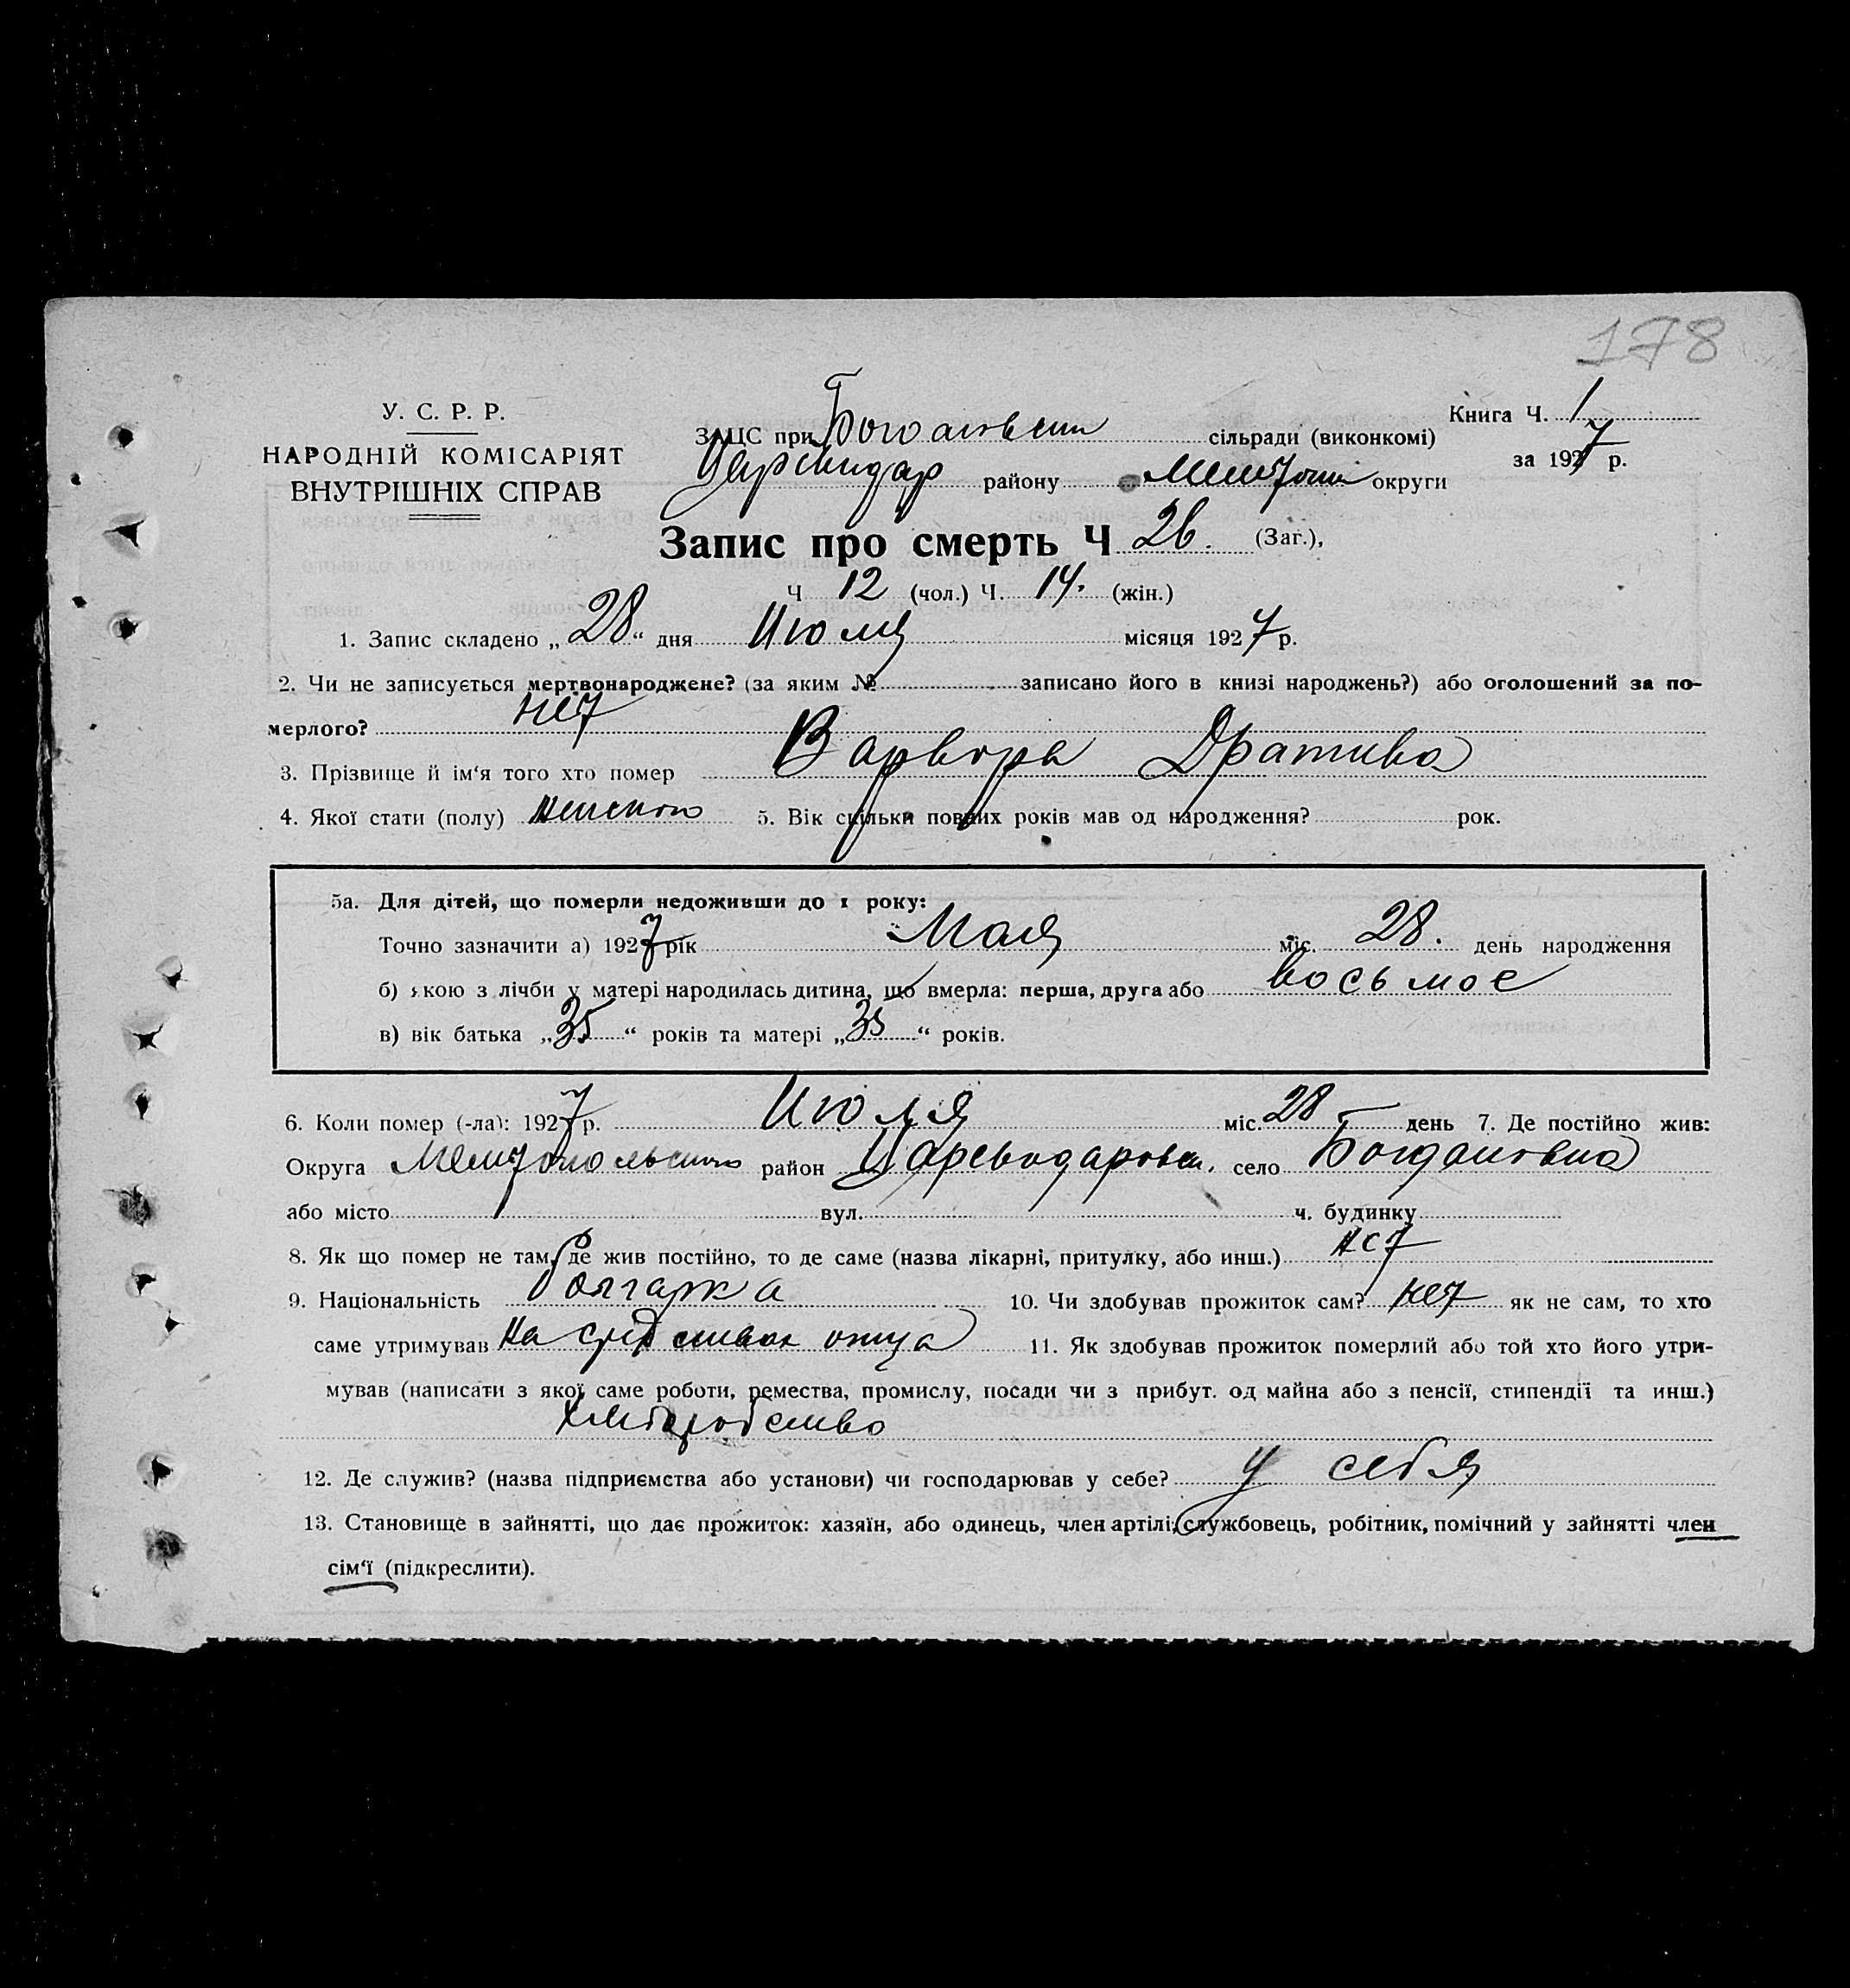 178
У. С. Р. Р.
НАРОДНІЙ КОМІСАРІЯТ
ВНУТРІШНІХ СПРАВ
Книга Ч. 1
за 1927 р.
ЗАЦС при сільради (виконкомі)
району округи
Запис про смерть Ч 26. (Заг.),
Ч 12 (чол.) Ч. 14. (жін.)
1. Запис складено „28“ дня Июля місяця 1927 р.
2. Чи не записується мертвонароджене? (за яким № записано його в книзі народжень?) або оголошений за по-
мерлого? нет
3. Прізвище й ім‘я того хто помер Варвара
4. Якої стати (полу) женского 5. Вік скільки повних років мав од народження? рок.
5а. Для дітей, що померли недоживши до 1 року:
Точно зазначити а) 1927 рік Мая міс. 28. день народження
б) якою з лічби у матері народилась дитина, що вмерла: перша, друга або восьмое
в) вік батька „35“ років та матері „35“ років.
6. Коли помер (-ла): 1927 р. Июля міс. 28 день 7. Де постійно жив:
Округа Мелитопольского район село Богдановка
або місто вул. ч. будинку
8. Як що помер не там, де жив постійно, то де саме (назва лікарні, притулку, або инш.) нет
9. Національність болгарка 10. Чи здобував прожиток сам? нет як не сам, то хто
саме утримував На средствах отца 11. Як здобував прожиток померлий або той хто його утри-
мував (написати з якої саме роботи, ремества, промислу, посади чи з прибут. од майна або з пенсії, стипендії та инш.)
хлебаробство
12. Де служив? (назва підприємства або установи) чи господарював у себе? у себя
13. Становище в зайнятті, що дає прожиток: хазяїн, або одинець, член артілі, службовець, робітник, помічний у зайнятті член
сім‘ї (підкреслити).